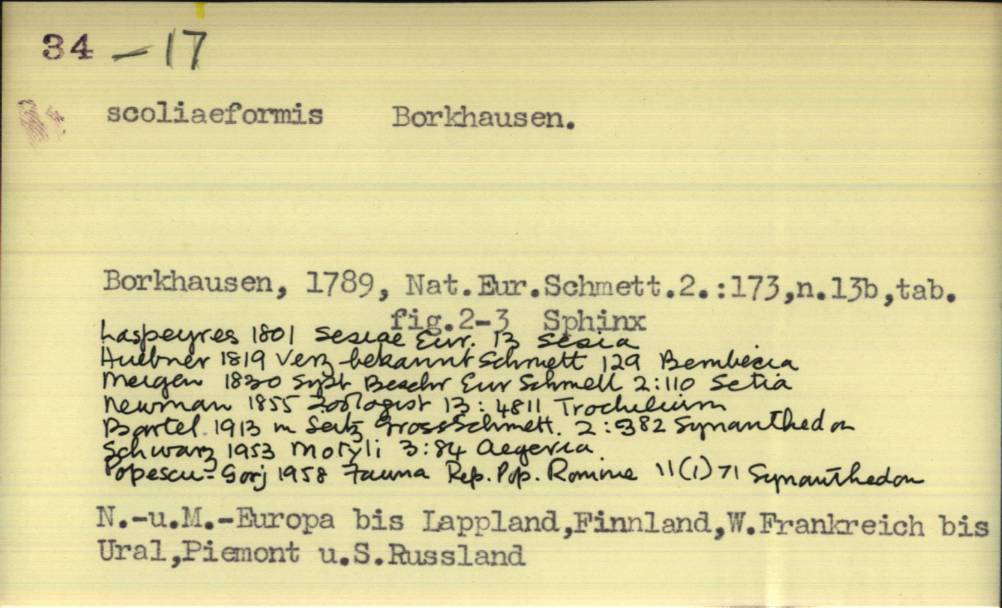 34 - 17
scoliaeformis Borkhausen.
Borkhausen, 1789, Nat.Eur.Schmett.2.:173,n.13b,tab.
fig.2-3 Sphinx
Laspeyres 1801 Sesiae Eur. 13 Sesia
Huebner 1819 Verz bekannt Schmett 129 Bembecia
Meigen 1830 Syst Beschr Eur Schmett 2:110 Setia
Newman 1855 Zoologist 13:4811 Trochilium
Bartel 1913 in Seitz GrossSchmett. 2:382 Synanthedon
Schwarz 1953 Motyli 3:84 Aegeria
Popescu-Gorj 1958 Fauna Rep. Pop. Romine 11(1)71 Synanthedon
N.-u.M.-Europa bis Lappland,Finnland,W.Frankreich bis
Ural,Piemont u.S.Russland